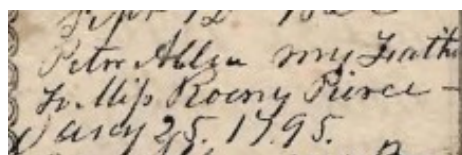 Sept 12
Peter Allen my Fathe
to Miss Roeny Pierce -
Jany 25. 1795.